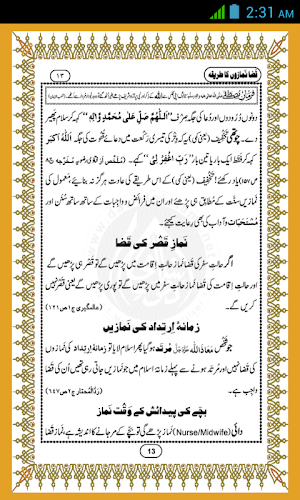 2:31 AM
قضا نمازوں کا طریقہ ۱۳
دونوں دُرُودوں اور دُعا کی جگہ صِرف ”اَللّٰھُمَّ صَلِّ عَلٰی مُحَمَّدٍ وَّاٰلِہٖ“ کہہ کر سلام پھیر
دے۔ چوتھی تخفیف (یعنی کمی) یہ کہ وِتر کی تیسری رَکْعت میں دعائے قُنُوت کی جگہ اَللّٰہُ اَکْبَر
کہہ کر فقط ایک بار یا تین بار ”رَبِّ اغْفِرْ لِیْ“ کہے۔ (مُلَخَّص از فتاوٰی رضویہ مُخَرَّجہ ج۸
ص۱۵۷) یاد رکھئے! تخفیف (یعنی کمی) کے اس طریقے کی عادت ہرگز نہ بنائیے، معمول کی
نمازیں سنّت کے مطابِق ہی پڑھئے اور ان میں فرائض و واجبات کے ساتھ ساتھ سُنَن اور
مُسْتَحَبّات و آداب کی بھی رعایت کیجئے۔
نمازِ قَصْر کی قضا
اگر حالتِ سفر کی قضا نماز حالتِ اِقامت میں پڑھیں گے تو قصر ہی پڑھیں گے اور
حالتِ اِقامت کی قضا نماز سفر میں پڑھیں گے تو پوری پڑھیں گے یعنی قصر نہیں
کریں گے۔ (عالمگیری ج۱ ص۱۲۱)
زمانۂ اِرتِداد کی نمازیں
جو شخص مَعاذَاللّٰہ عَزَّوَجَلَّ مُرتَد ہو گیا پھر اسلام لایا تو زمانۂ اِرتِداد کی نمازوں
کی قضا نہیں اور مُرتَد ہونے سے پہلے زمانۂ اسلام میں جو نمازیں جاتی رہی تھیں اُن کی قضا
واجب ہے۔ (رَدُّالمُحتار ج۲ ص۶۴۷)
بچے کی پیدائش کے وَقْت نماز
دائی (Nurse/Midwife) نماز پڑھے گی تو بچّے کے مر جانے کا اندیشہ ہے، نماز قضا
13